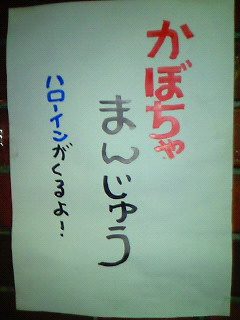 かぼちゃ
まんじゅう
ハローインがくるよ!